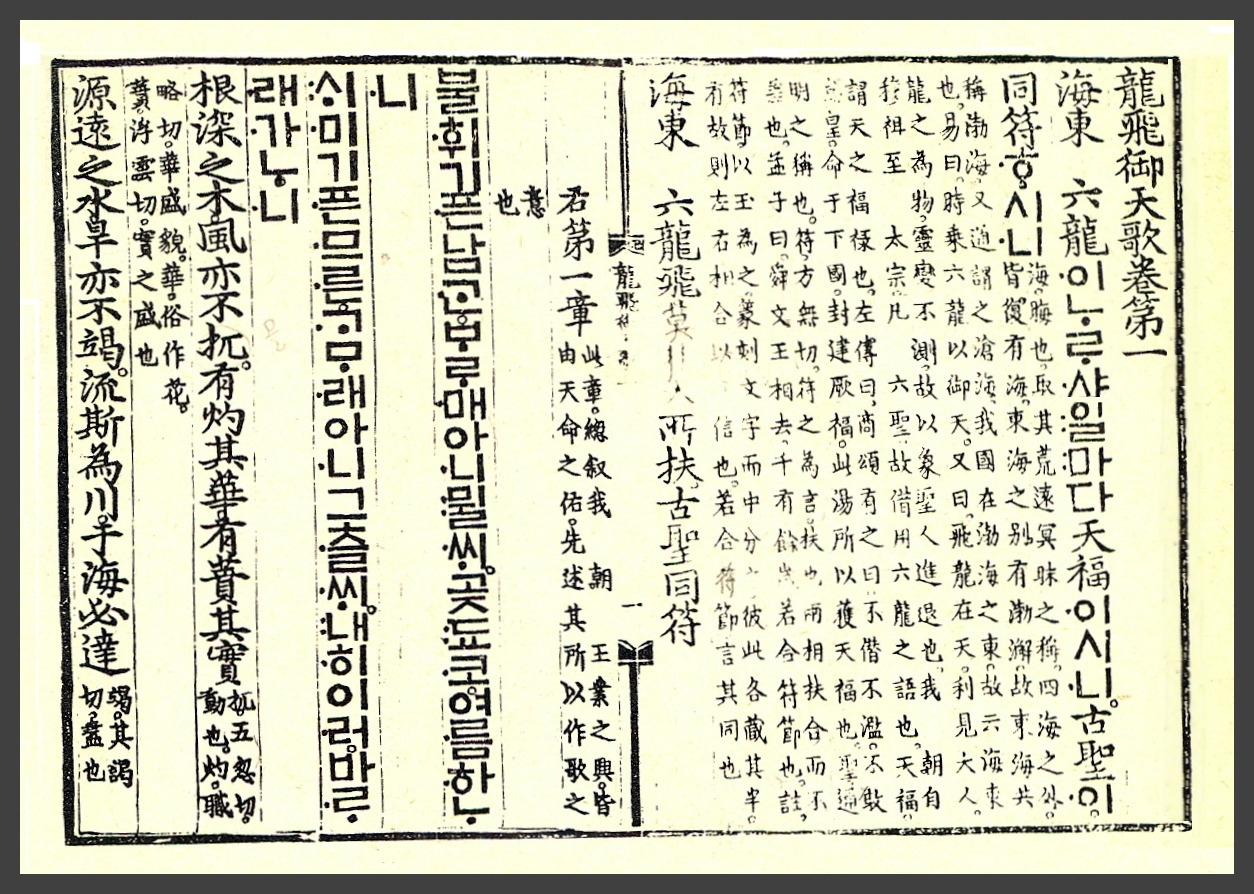 龍飛御天歌卷第一
海東 六龍이ᄂᆞᄅᆞ샤일마다天福이시니。古聖이
同符ᄒᆞ시니
海。晦也。取其荒遠冥昧之稱。四海之外。
皆復有海。東海之別有渤澥。故東海共
稱渤海。又通謂之滄海。我國在渤海之東。故云海東
也。易曰。時乘六龍以御天。又曰。飛龍在天。利見大人。
龍之為物。靈變不測。故以象聖人進退也。我 朝自
穆祖至 太宗。凡 六聖。故借用六龍之語也。天福。
謂天之福祿也。左傳曰。商頌有之曰。不僭不濫。不敢
怠皇。命于下國。封建厥福。此湯所以獲天福也。聖。通
明之稱也。符。方無切。符之為言扶也。兩相扶合而不
差也。孟子曰。舜文王相去千有餘歲。若合符節也。註。
符節以玉為之。篆刻文字而中分之。彼此各藏其半。
有故則左右相合以 信也。若合符節。言其同也
海東 六龍飛莫 所扶。古聖同符
龍飛
一
君第一章
此章。總叙我 朝 王業之興。皆
由天命之佑。先述其所以作歌之
意
也
불휘기픈남ᄀᆞᆫᄇᆞᄅᆞ매아니뮐ᄊᆡ。곶됴코여름하ᄂᆞ
니
ᄉᆡ미기픈므른ᄀᆞᄆᆞ래아니그츨ᄊᆡ。내히이러바ᄅᆞ
래가ᄂᆞ니
根深之木。風亦不扤。有灼其華。有蕡其實
扤。五忽切。
動也。灼。職
略切。華盛貌。華。俗作花。
蕡。浮雲切。實之盛也
源遠之水。旱亦不竭。流斯為川。于海必達
竭。其謁
切。盡也